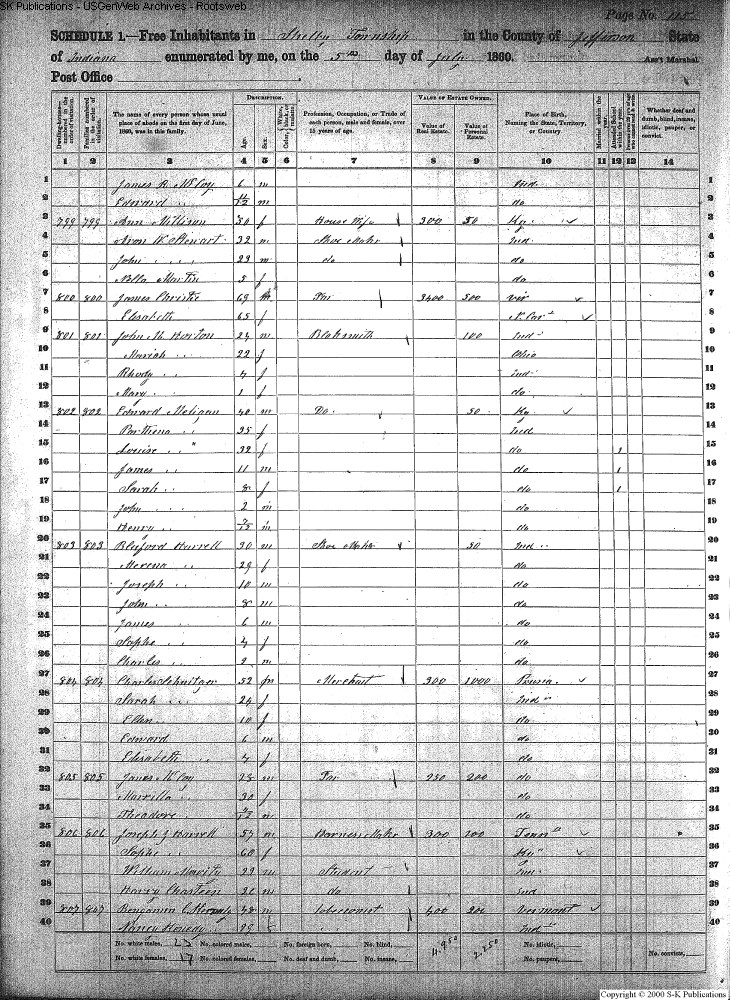 S-K Publications - USGenWeb Archives - Rootsweb
Page No. 115
SCHEDULE 1.—Free Inhabitants in Shelby Township in the County of Jefferson State
of Indiana enumerated by me, on the 5th day of July 1860. Ass't Marshal
Post Office
Dwelling-houses—numbered in the order of visitation.
Families numbered in the order of visitation.
The name of every person whose usual place of abode on the first day of June, 1860, was in this family.
DESCRIPTION.
Age.
Sex.
Color, White, black, or mulatto.
Profession, Occupation, or Trade of each person, male and female, over 15 years of age.
VALUE OF ESTATE OWNED.
Value of Real Estate.
Value of Personal Estate.
Place of Birth, Naming the State, Territory, or Country.
Married within the year.
Attended School within the year.
Whether deaf and dumb, blind, insane, idiotic, pauper, or convict.
1 2 3 4 5 6 7 8 9 10 11 12 13 14
1 James R McCoy 6 m Ind 1
2 Edward " m do 2
3 799 799 Ann Millison 50 f House Wife 300 50 Ky 3
4 Aron W Stewart 32 m Shoe Maker Ind 4
5 John " 23 m do do 5
6 Martin 5 f do 6
7 800 800 James Christie 69 m Far 3400 500 Vir 7
8 Elisabeth 65 f N. Car 8
9 801 801 John M Horton 24 m Blaksmith 100 Ind 9
10 Mariah " 22 f Ohio 10
11 Rhody " 4 f Ind 11
12 Mary " 1 f do 12
13 802 802 Edward 40 m Do 50 Ky 13
14 Parthena " 35 f Ind 14
15 Louise " 32 f do 15
16 James " 11 m do 16
17 Sarah " 8 f do 17
18 John " 2 m do 18
19 Henry " m do 19
20 803 803 Bluford Harrell 30 m Shoe Maker 50 Ind 20
21 " 29 f do 21
22 Joseph " 10 m do 22
23 John " 8 m do 23
24 James " 6 m do 24
25 Sophe " 4 f do 25
26 Charles " 2 m do 26
27 804 804 Charles Schnitzer 52 m Merchant 300 1000 27
28 Sarah " 24 f Ind 28
29 Ellen " 10 f do 29
30 Edward 6 m do 30
31 Elisabeth " 4 f do 31
32 805 805 James McCoy 28 m Far 250 200 do 32
33 " 30 f do 33
34 Theadore " m do 34
35 806 806 Joseph J Harrell 59 m Harness Maker 300 200 Tenn 35
36 Sophe " 60 f Ky 36
37 William 22 m Student 37
38 Harry Chasteen 21 m do Ind 38
39 807 807 Benjamin C 48 m 400 200 Vermont 39
40 Nancy 29 f Ind 40
No. white males, 23 No. colored males, No. foreign born, No. blind, 4.950 2.250 No. idiotic,
No. white females, 17 No. colored females, No. deaf and dumb, No. insane, No. paupers, No. convicts,
Copyright © 2000 S-K Publications